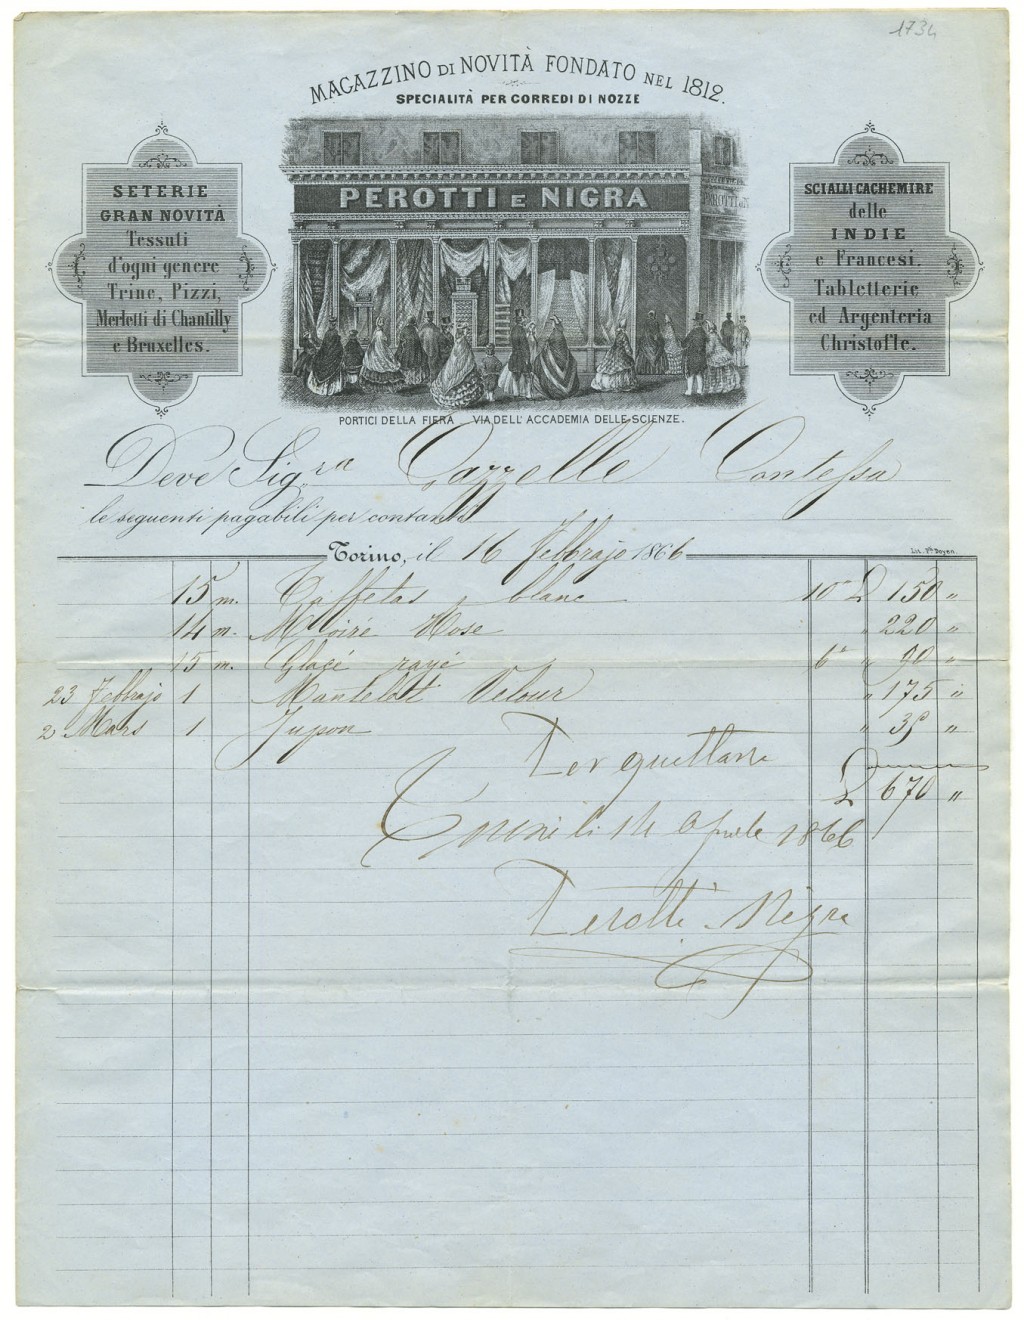 1734
MAGAZZINO DI NOVITÀ FONDATO NEL 1812.
SPECIALITÀ PER CORREDI DI NOZZE
PEROTTI E NIGRA
PEROTTI E N
SETERIE
GRAN NOVITÀ
Tessuti
d'ogni genere
Trine, Pizzi,
Merletti di Chantilly
e Bruxelles.
SCIALLI CACHEMIRE
delle
INDIE
e Francesi.
Tabletterie
ed Argenteria
Christofle.
PORTICI DELLA FIERA VIA DELL'ACCADEMIA DELLE SCIENZE.
Deve Sig.ra Cazzelle Contessa
le seguenti pagabili per contanti
Torino, il 16 Febbrajo 1866
Lit. Fli Doyen.
15 m. Taffetas blanc 10 " £ 150 "
14 m. Moiré Rose " 220 "
15 m. Glacé rayé 6 " " 90 "
23 Febbrajo 1 Mantelet Velour " 175 "
2 Mars 1 Jupon " 35 "
£ 670 "
Per quittance
li 14 Aprile 1866
Perotti Nigra